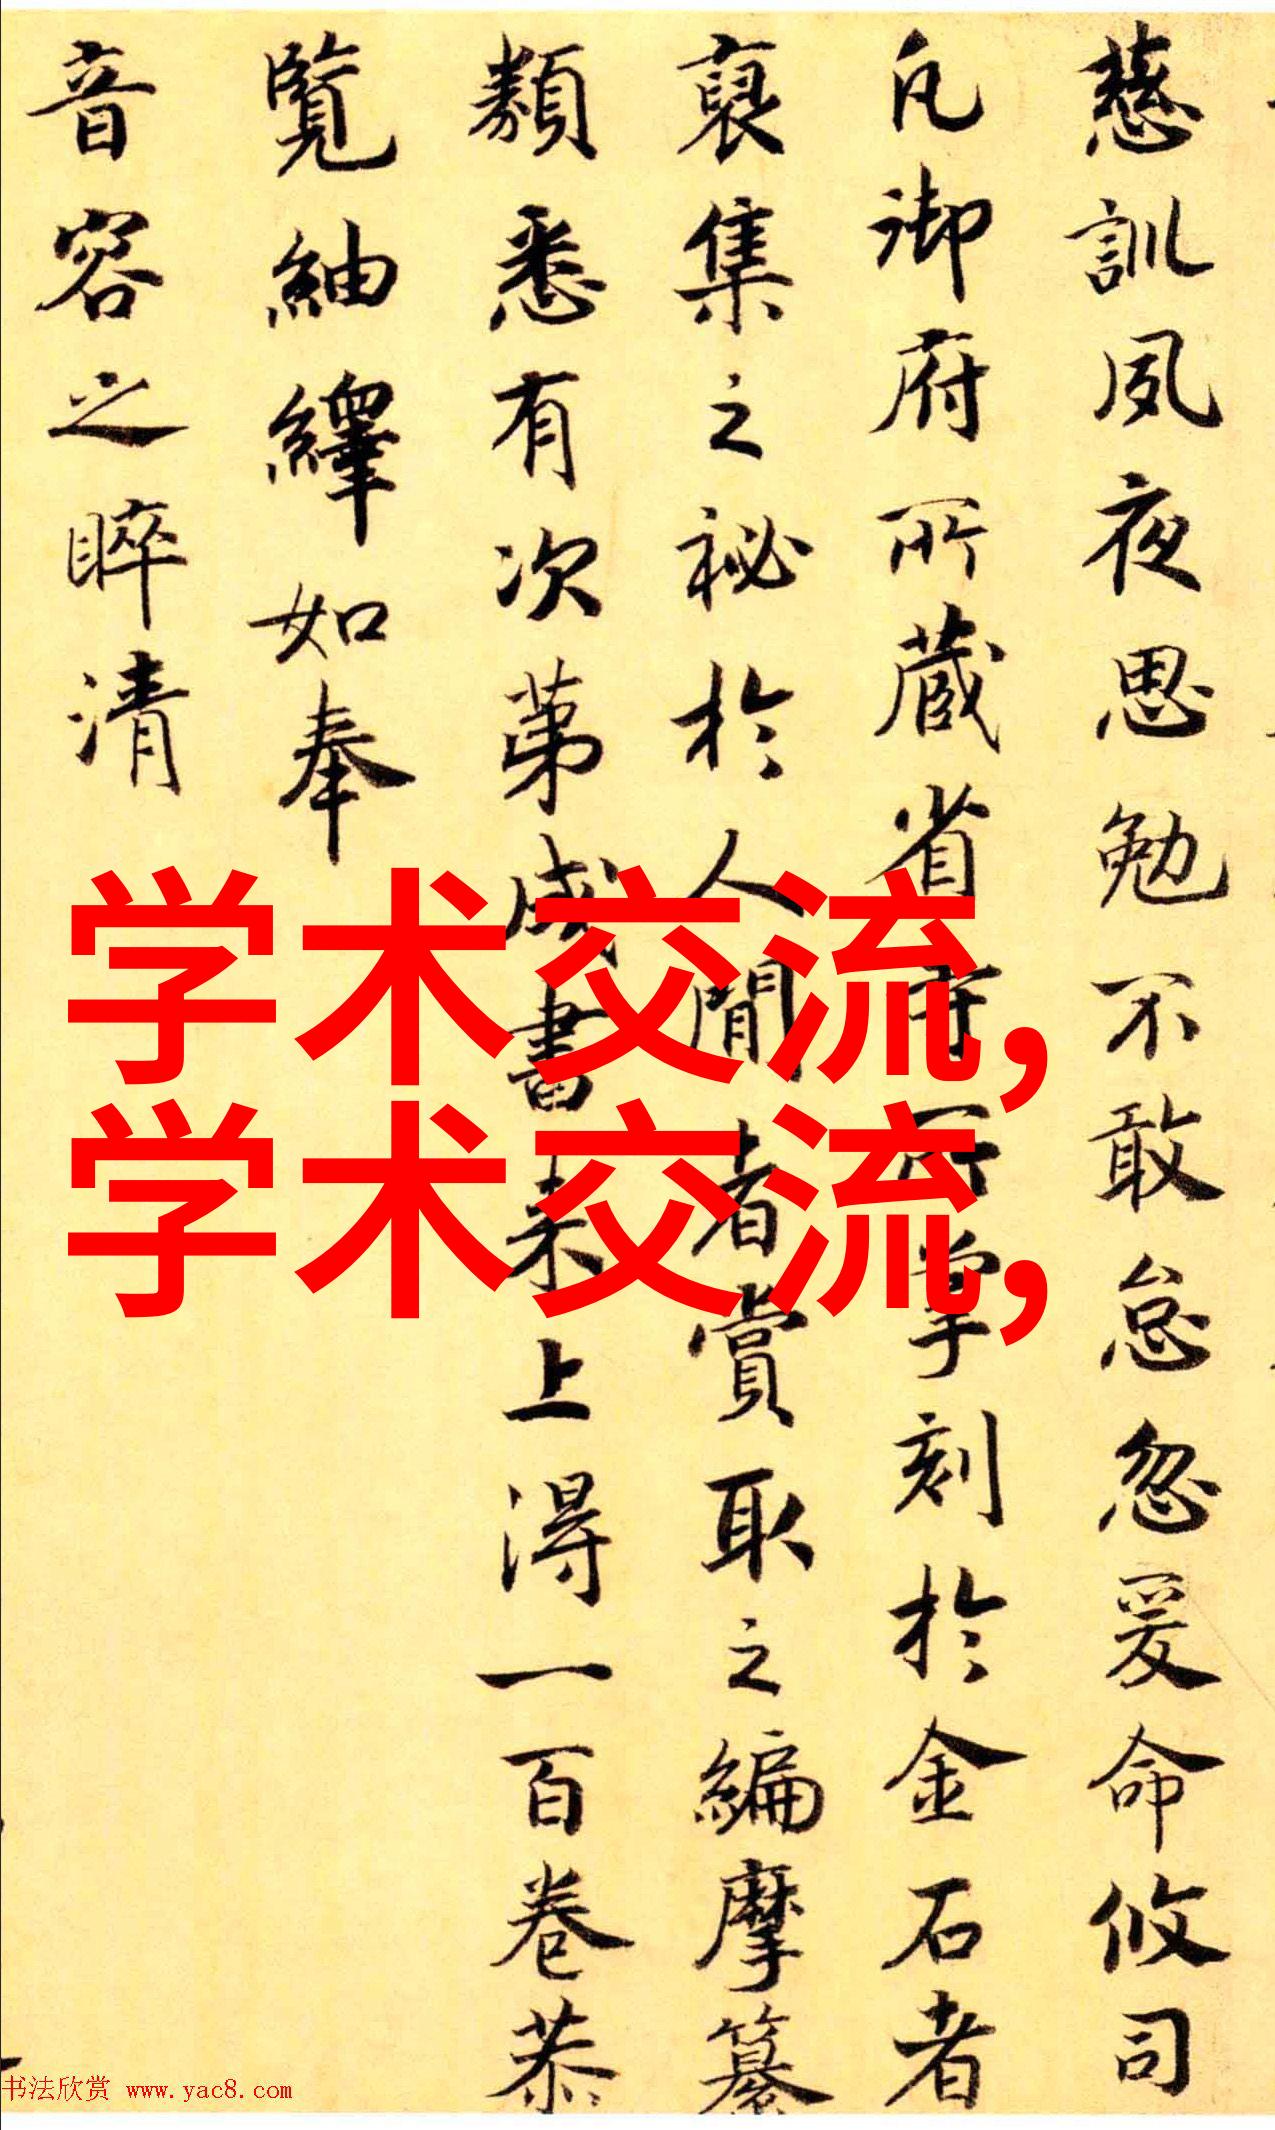 慈訓夙夜思勉不敢怠忽爰命攸司
凡御府所藏省寺所掌刻於金石者
裒集之祕於人間者賞取之編摩纂
類悉有次第成書來上得一百卷恭
覽紬繹如奉
音容之睟清
学术交流,
学术交流,
书法欣赏 www.yac8.com